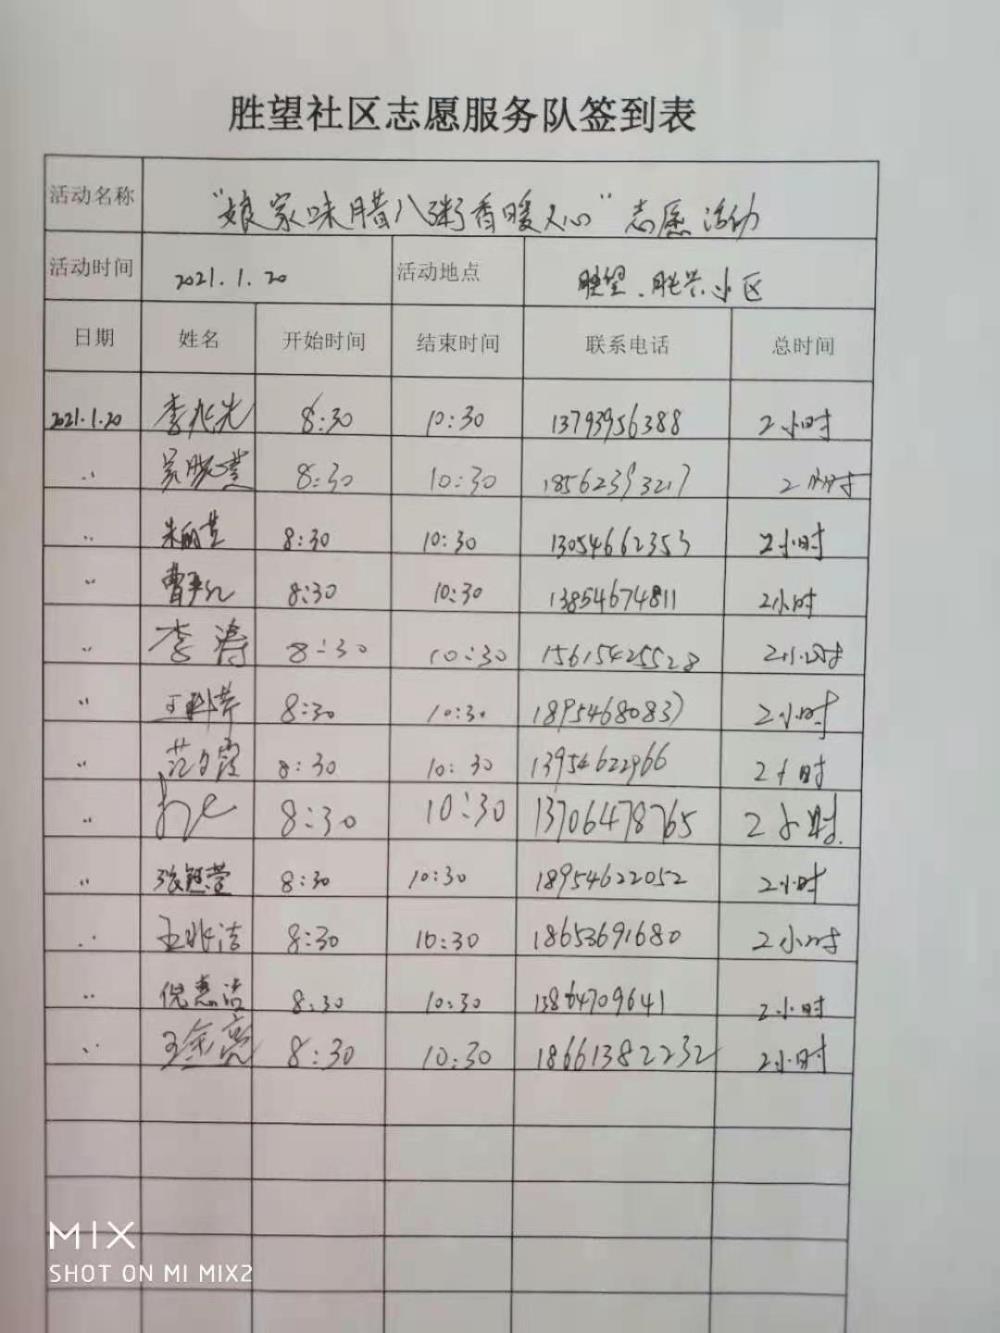 胜望社区志愿服务队签到表
活动名称 "娘家味腊八粥香暖人心"志愿活动
活动时间 2021.1.20 活动地点 胜望、胜兴小区
日期 姓名 开始时间 结束时间 联系电话 总时间
2021.1.20 李兆光 8:30 10:30 13793956388 2小时
〃 吴晓慧 8:30 10:30 18562393217 2小时
〃 朱丽芝 8:30 10:30 13054662353 2小时
〃 曹 8:30 10:30 13854674811 2小时
〃 李涛 8:30 10:30 15615425528 2小时
〃 8:30 10:30 18954680837 2小时
〃 范夕霞 8:30 10:30 13954622966 2小时
〃 8:30 10:30 13706478765 2小时.
〃 张慧莹 8:30 10:30 18954622052 2小时
〃 王兆洁 8:30 10:30 18653691680 2小时
〃 倪惠洁 8:30 10:30 13864709641 2小时
〃 王金亮 8:30 10:30 18661382232 2小时
MIX
SHOT ON MI MIX2